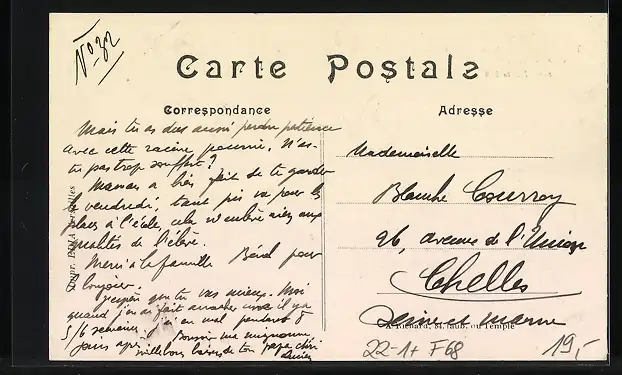 No 32
Carte Postale
Correspondance
Adresse
Mais tu as dû aussi perdre patience
avec cette racine pourrie. N'as-
tu pas trop souffert ?
Maman a bien fait de te garder
le vendredi, tant pis va pour les
places à l'école, cela n'enlève rien aux
qualités de l'élève.
Merci à la famille Bénel pour
bonjour.
J'espère que tu vas mieux. Moi
quand j'en ai fait arracher une il y a
5/6 semaines, j'ai eu mal pendant 8
jours après. Bonsoir ma mignonne,
mille bons baisers de ton papa chéri
Lucien
Mademoiselle
Blanche Courroy
96, avenue de l'Union
Chelles
Seine et Marne
Impr. Versailles
A. Richard, 84, faub. du Temple
22-1+ F68
19,-